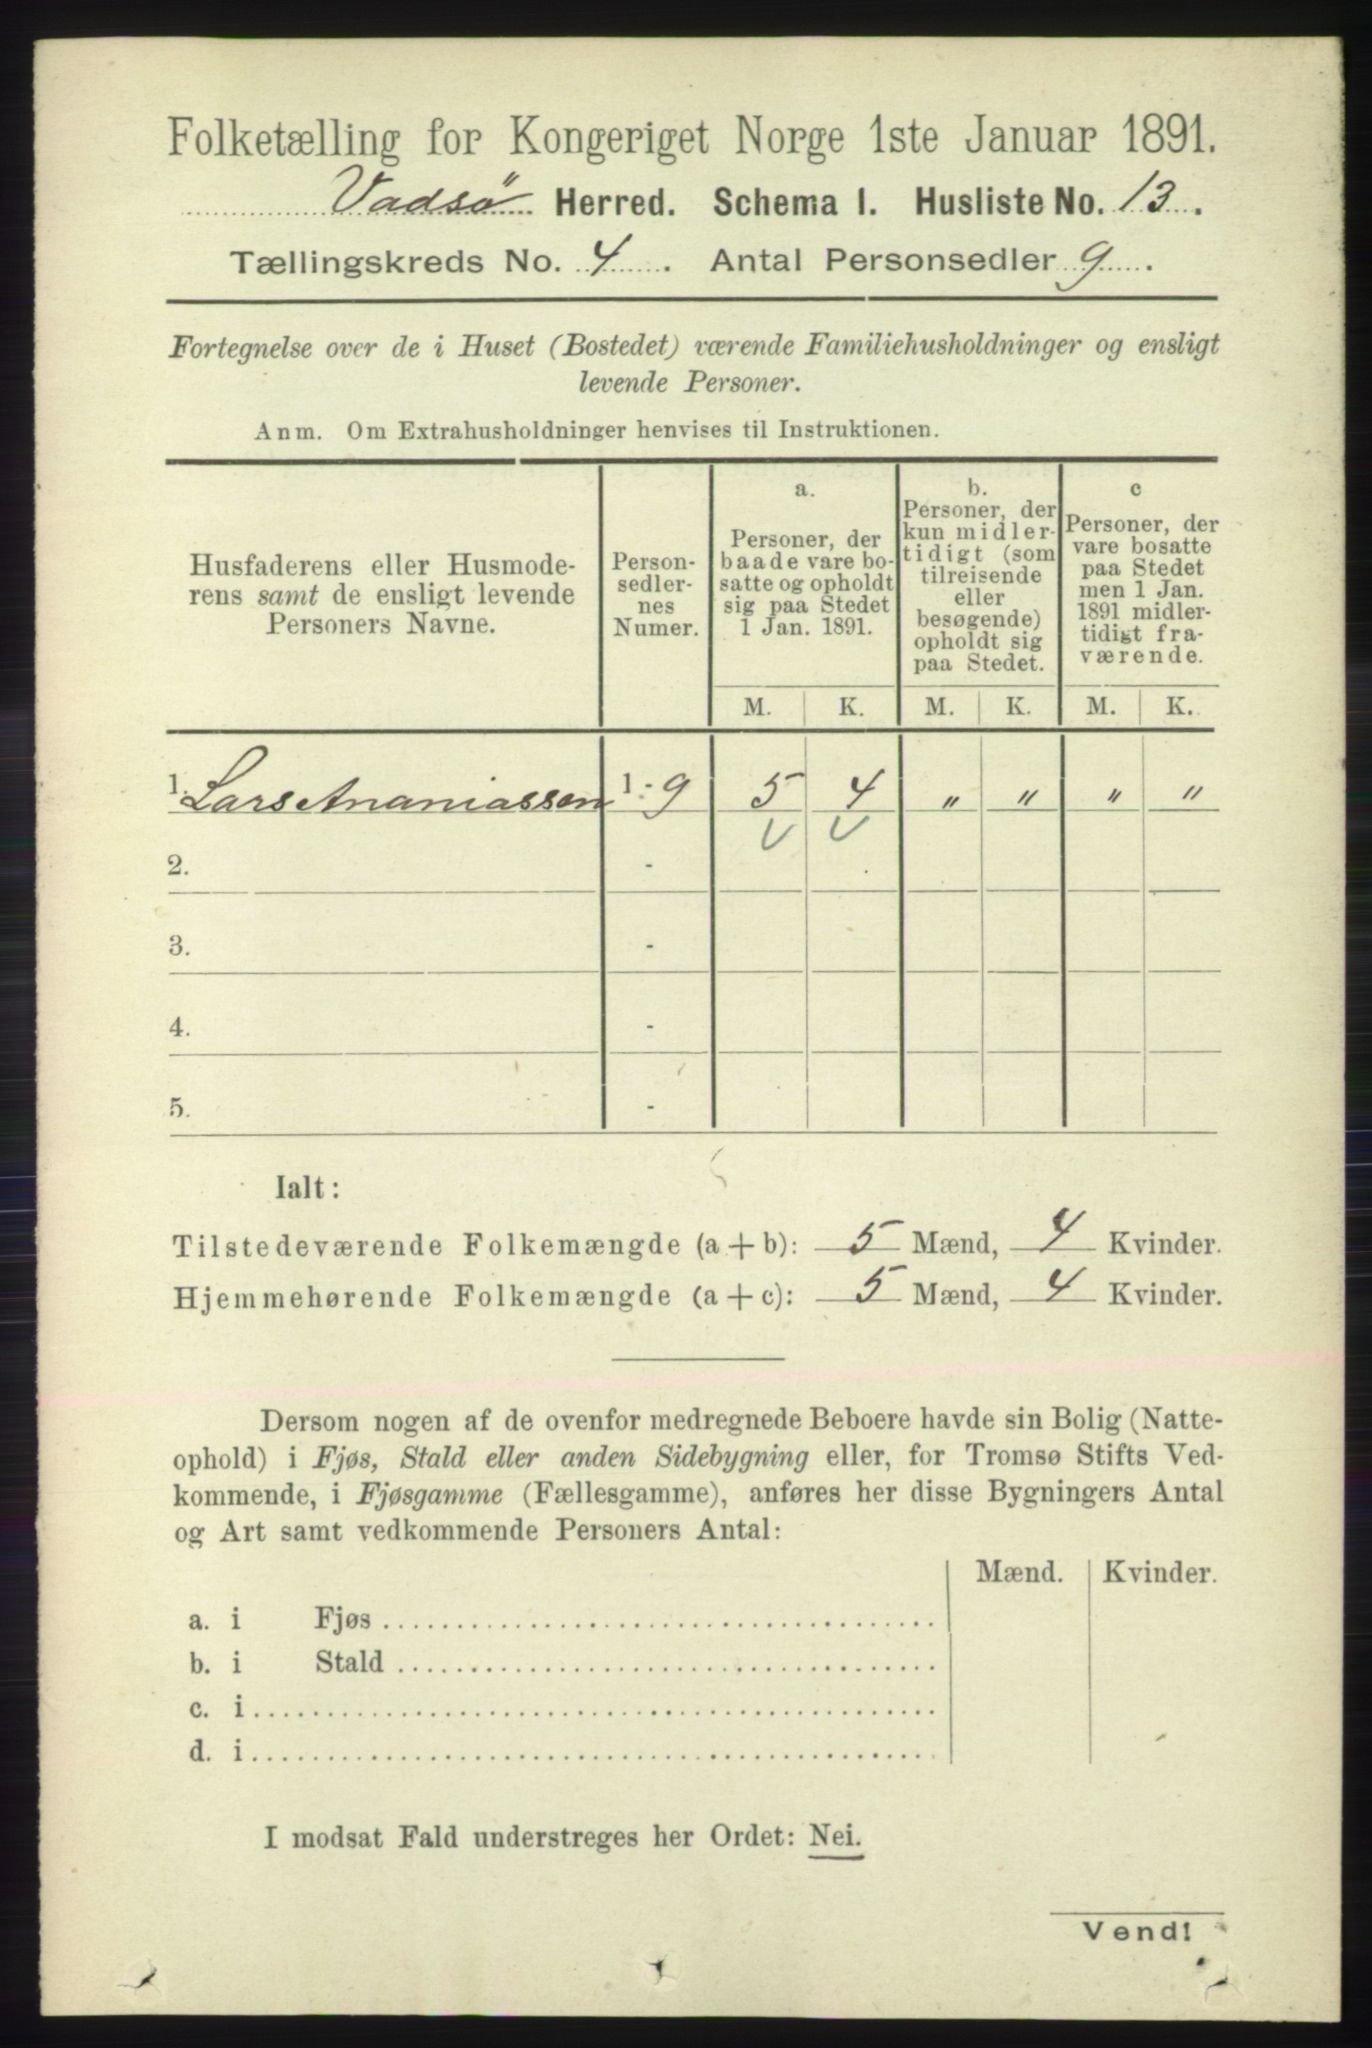 Folketælling for Kongeriget Norge 1ste Januar 1891.
Vadsö Herred. Schema I. Husliste No. 13.
Tællingskreds No. 4. Antal Personsedler 9.
Fortegnelse over de i Huset (Bostedet) værende Familiehusholdninger og ensligt
levende Personer.
Anm. Om Extrahusholdninger henvises til Instruktionen.
Husfaderens eller Husmode-
rens samt de ensligt levende
Personers Navne.
Person-
sedler-
nes
Numer.
a.
Personer, der
baade vare bo-
satte og opholdt
sig paa Stedet
1 Jan. 1891.
b.
Personer, der
kun midler-
tidigt (som
tilreisende
eller
besøgende)
opholdt sig
paa Stedet.
c
Personer, der
vare bosatte
paa Stedet
men 1 Jan.
1891 midler-
tidigt fra-
værende.
M. K. M. K. M. K.
1. Lars Ananiassen 1-9 5 4 " " " "
2. -
3. -
4. -
5. -
Ialt:
Tilstedeværende Folkemængde (a+b): 5 Mænd, 4 Kvinder.
Hjemmehørende Folkemængde (a+c): 5 Mænd, 4 Kvinder.
Dersom nogen af de ovenfor medregnede Beboere havde sin Bolig (Natte-
ophold) i Fjøs, Stald eller anden Sidebygning eller, for Tromsø Stifts Ved-
kommende, i Fjøsgamme (Fællesgamme), anføres her disse Bygningers Antal
og Art samt vedkommende Personers Antal:
Mænd. Kvinder.
a. i Fjøs
b. i Stald
c. i
d. i
I modsat Fald understreges her Ordet: Nei.
Vend!